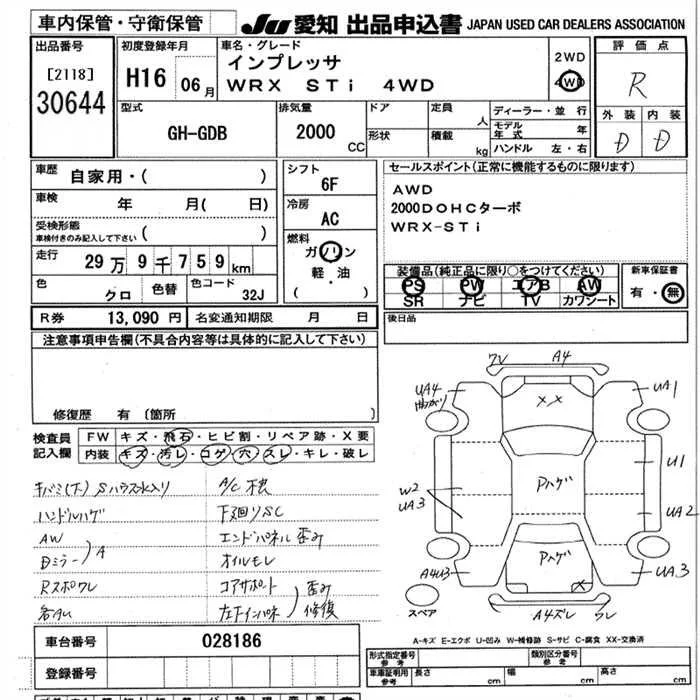 車内保管・守衛保管
JU 愛知 出品申込書 JAPAN USED CAR DEALERS ASSOCIATION
出品番号
[2118]
30644
初度登録年月
H16 06月
車名・グレード
インプレッサ
WRX STi 4WD
2WD
4WD
評価点
R
外装 内装
D D
型式
GH-GDB
排気量
2000 CC
ドア
形状
定員 人
積載 kg
ディーラー・並行
モデル年式 年
ハンドル 左・右
車歴
自家用・( )
車検 年 月( 日)
受検形態
車検付きのみ記入して下さい ( )
走行 29万9千759km
色 クロ 色替 色コード 32J
シフト
6F
冷房
AC
燃料
ガソリン
軽・油
( )
セールスポイント(正常に機能するものに限ります)
AWD
2000DOHCターボ
WRX-STi
装備品(純正品に限り○をつけてください)
PS PW エアB AW
SR ナビ TV カワシート
新車保証書
有・無
R券 13,090円 名変通知期限 月 日
後日品
注意事項申告欄(不具合内容等は具体的に記入して下さい)
修復歴 有 (箇所
検査員記入欄
FW キズ・飛石・ヒビ割・リペア跡・X要
内装 キズ・汚レ・コゲ・穴・スレ・キレ・破レ
キバミ(大) Sハウス水入り
ハンドルハゲ
AW
Dミラー A
Rスポワレ
各サビ
A/C不良
下廻りSC
エンドパネル歪み
オイルモレ
コアサポート 歪み
修復
ワレ A4
UA4
UA1
XX
W2
UA3
Pハゲ
U1
UA2
A4U3
Pハゲ
X
UA3
スペア
A4ズレ ワレ
A-キズ E-エクボ U-凹み W-補修跡 S-サビ C-腐食 XX-交換済
車台番号 028186
登録番号
形式指定番号
参考
類別区分番号
参考
車庫証明用
参考
長さ cm
幅 cm
高さ cm